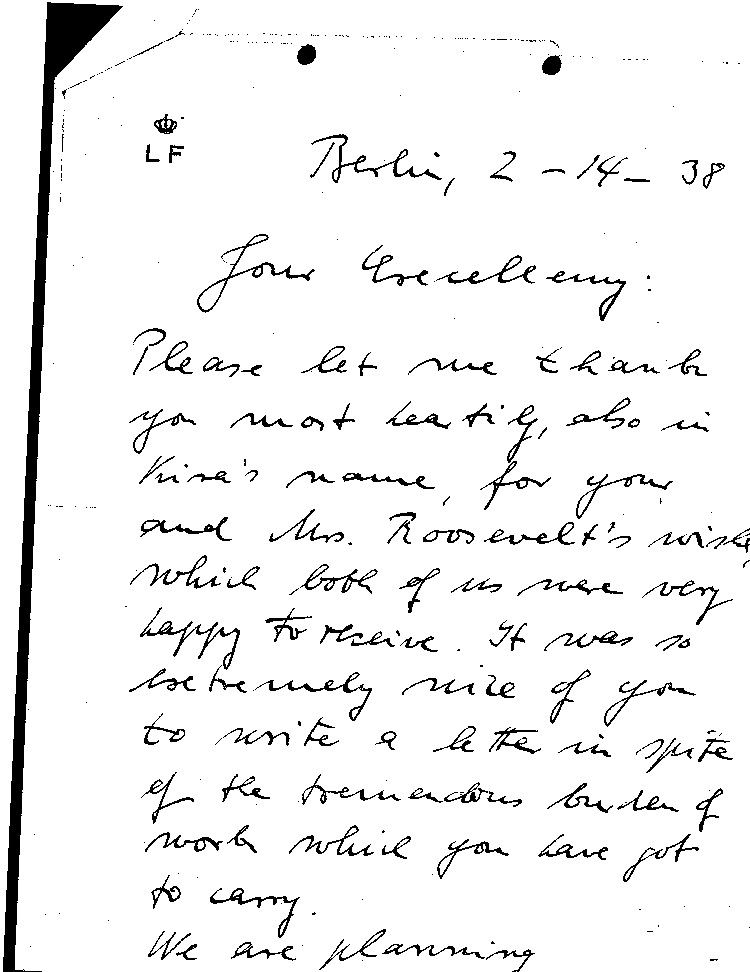 LF
Berlin, 2-14-38
Your Excellency:
Please let me thank
you most heartily, also in
Kira's name, for your
and Mrs. Roosevelt's wishes,
which both of us were very
happy to receive. It was so
extremely nice of you
to write a letter in spite
of the tremendous burden of
work which you have got
to carry.
We are planning